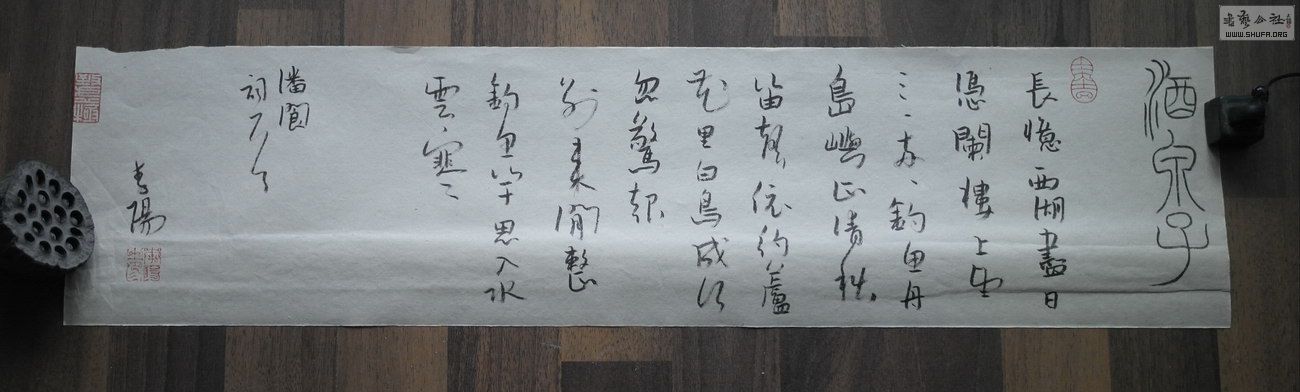 酒泉子
長憶西湖盡日
憑闌樓上望
三三兩兩釣魚舟
島嶼正清秋
笛聲依約蘆
花里白鳥成行
忽驚起
別來閒整
釣魚竿思入水
雲寒
潘閬
詞
陽
書藝公社
WWW.SHUFA.ORG